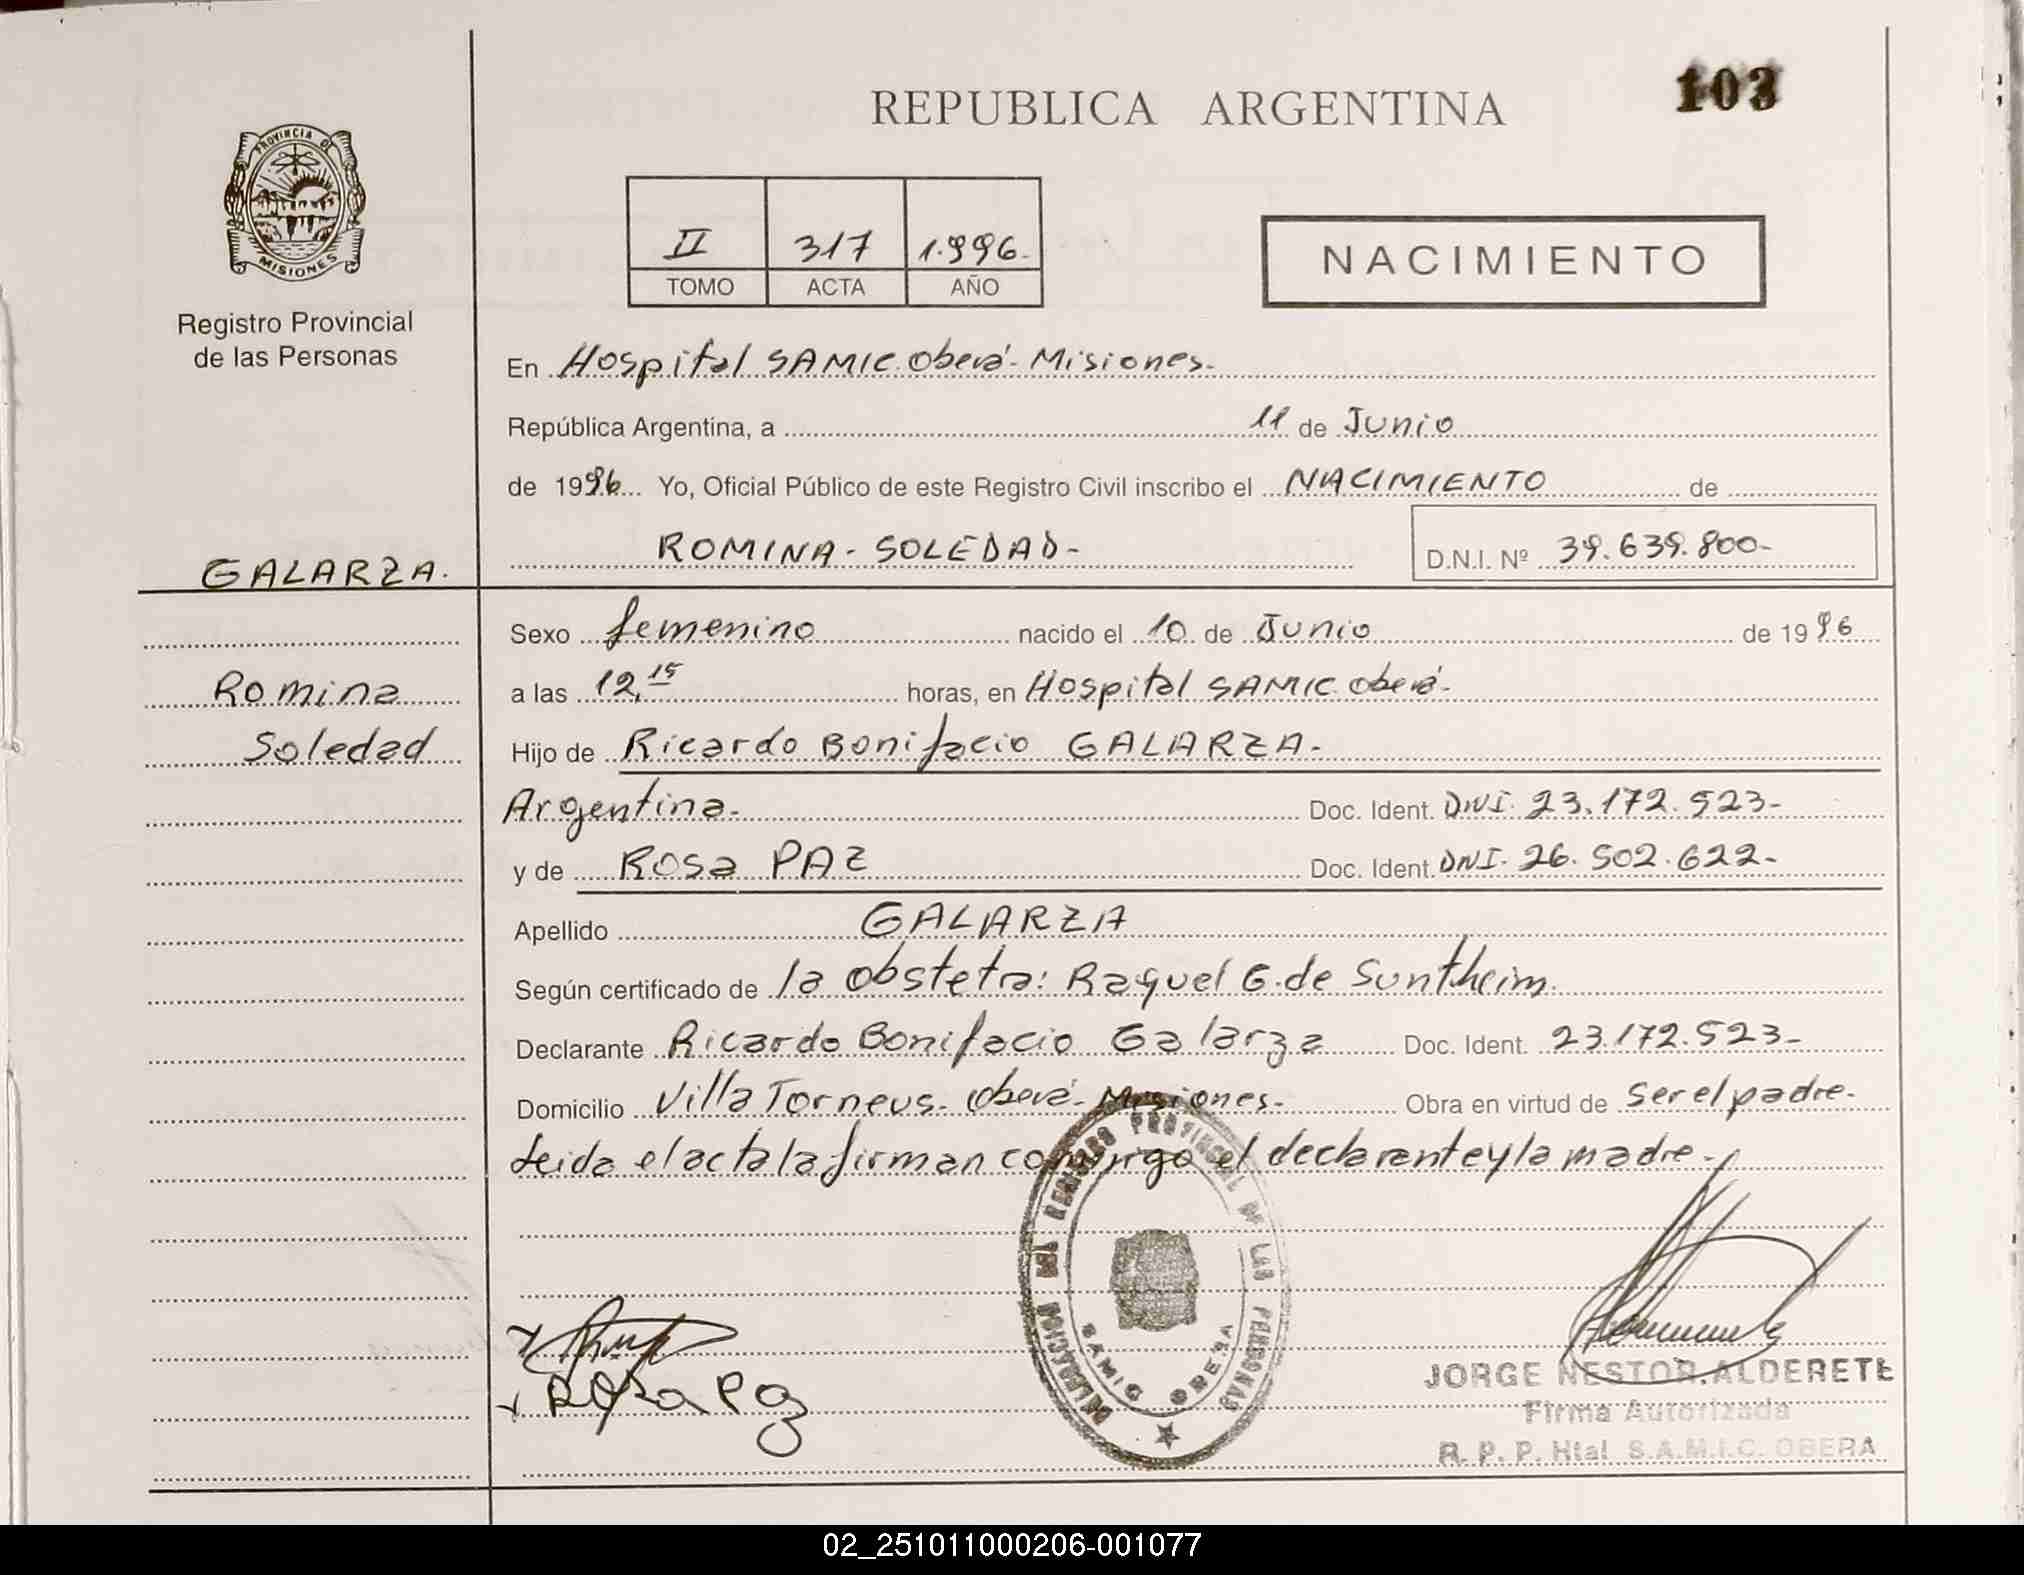 REPUBLICA ARGENTINA
103
PROVINCIA DE
MISIONES
Registro Provincial
de las Personas
II 317 1.996.
TOMO ACTA AÑO
NACIMIENTO
En Hospital SAMIC. Oberá- Misiones.-
República Argentina, a 11 de Junio
de 1996 Yo, Oficial Público de este Registro Civil inscribo el NACIMIENTO de
ROMINA - SOLEDAD-
D.N.I. Nº 39.639.800-
GALARZA.
Romina
Soledad
Sexo femenino nacido el 10 de Junio de 1996
a las 12,15 horas, en Hospital SAMIC. Oberá-
Hijo de Ricardo Bonifacio GALARZA.-
Argentina.- Doc. Ident. DNI. 23.172.523-
y de Rosa PAZ Doc. Ident. DNI. 26.502.622-
Apellido GALARZA
Según certificado de la obstetra: Raquel G. de Suntheim.
Declarante Ricardo Bonifacio Galarza Doc. Ident. 23.172.523-
Domicilio Villa Torneus. Oberá- Misiones.- Obra en virtud de Ser el padre.-
Leida el acta la firman conmigo el declarante y la madre.-
DELEGACION DEL REGISTRO PROVINCIAL DE LAS PERSONAS
SAMIC OBERA
Rosa Paz
JORGE NESTOR ALDERETE
Firma Autorizada
R. P. P. Htal. S.A.M.I.C. OBERA
02_251011000206-001077